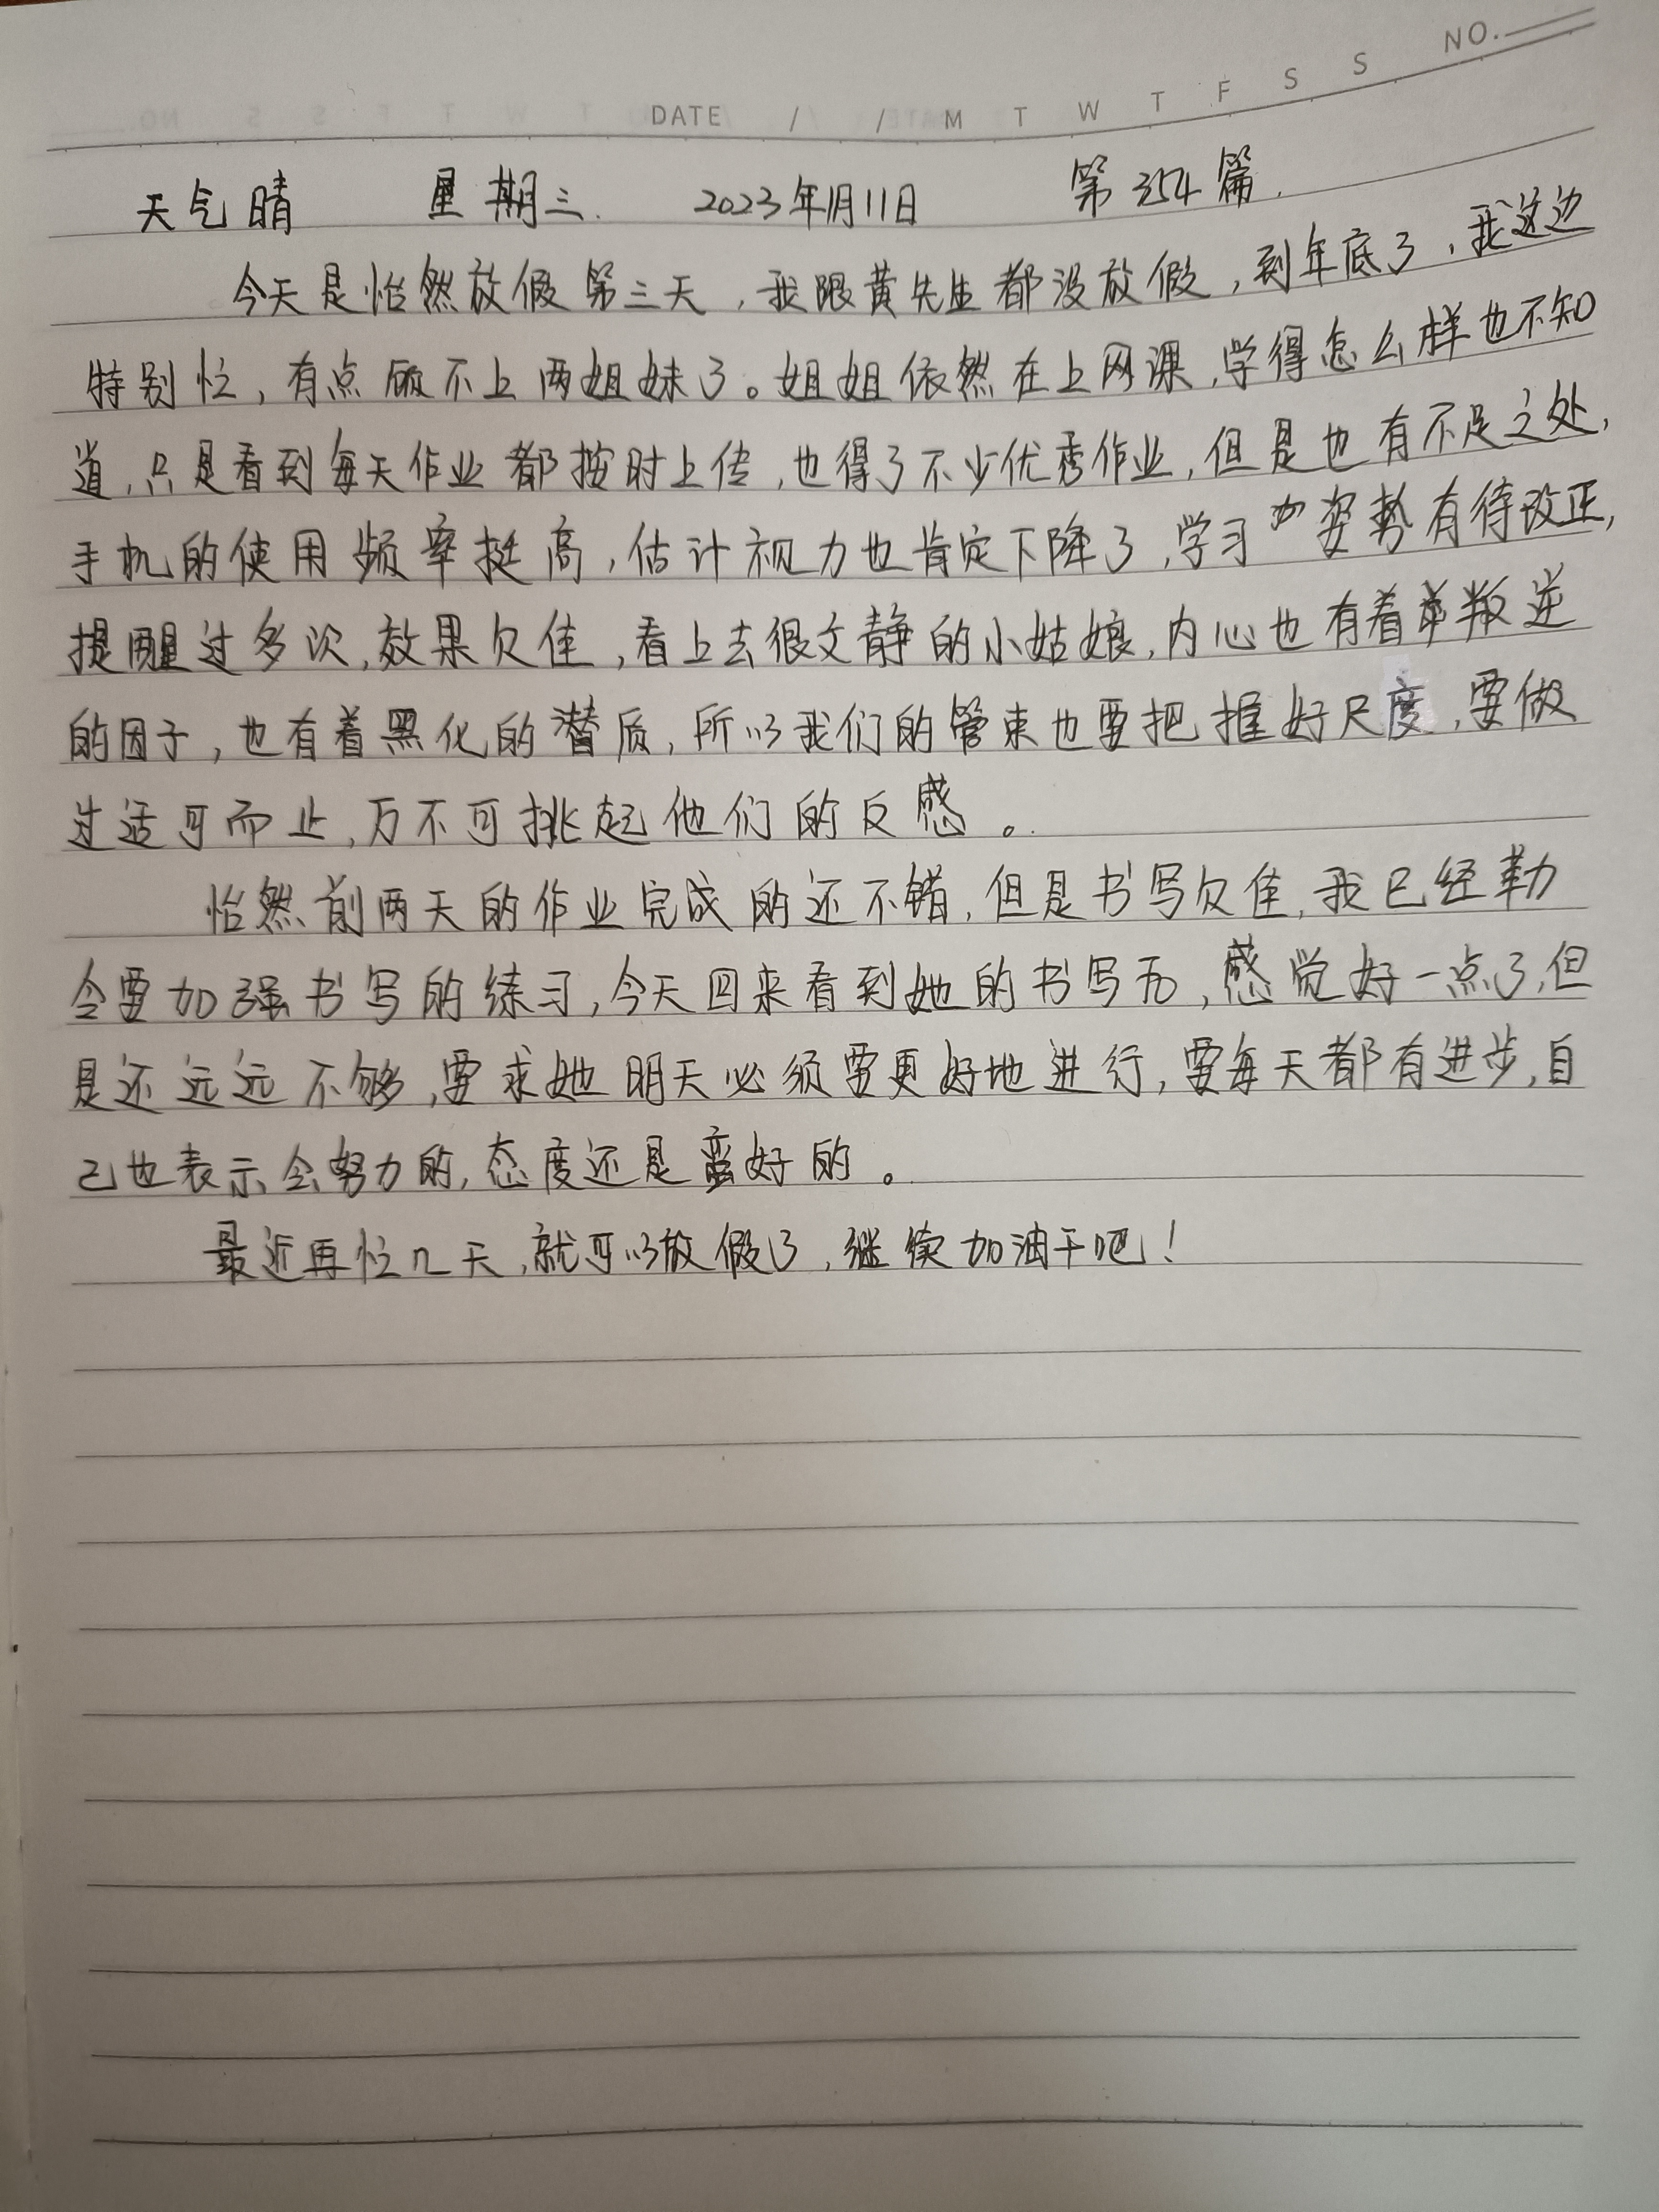 DATE / / M T W T F S S NO.
天气晴 星期三. 2023年1月11日 第354篇.
今天是怡然放假第三天,我跟黄先生都没放假,到年底了,我这边
特别忙,有点顾不上两姐妹了。姐姐依然在上网课,学得怎么样也不知
道,只是看到每天作业都按时上传,也得了不少优秀作业,但是也有不足之处,
手机的使用频率挺高,估计视力也肯定下降了,学习姿势有待改正,
提醒过多次,效果欠佳,看上去很文静的小姑娘,内心也有着叛逆
的因子,也有着黑化的潜质,所以我们的管束也要把握好尺度,要做
过适可而止,万不可挑起他们的反感。
怡然前两天的作业完成的还不错,但是书写欠佳,我已经勒
令要加强书写的练习,今天回来看到她的书写后,感觉好一点了,但
是还远远不够,要求她明天必须要更好地进行,要每天都有进步,自
己也表示会努力的,态度还是蛮好的。
最近再忙几天,就可以放假了,继续加油干吧!